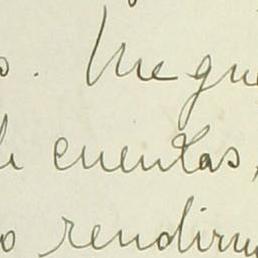 s. Me gus
cuentas,
o rendirm